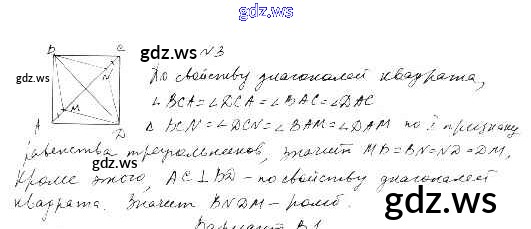 gdz.ws
B C gdz.ws №3
gdz.ws N По свойству диагоналей квадрата,
∠BCA = ∠DCA = ∠BAC = ∠DAC
M
A D △BCN = △DCN = △BAM = △DAM по I признаку
равенства треугольников, значит MB = BN = ND = DM,
gdz.ws
Кроме этого, AC ⊥ BD - по свойству диагоналей
квадрата. Значит BNDM - ромб.
gdz.ws
Вариант В1